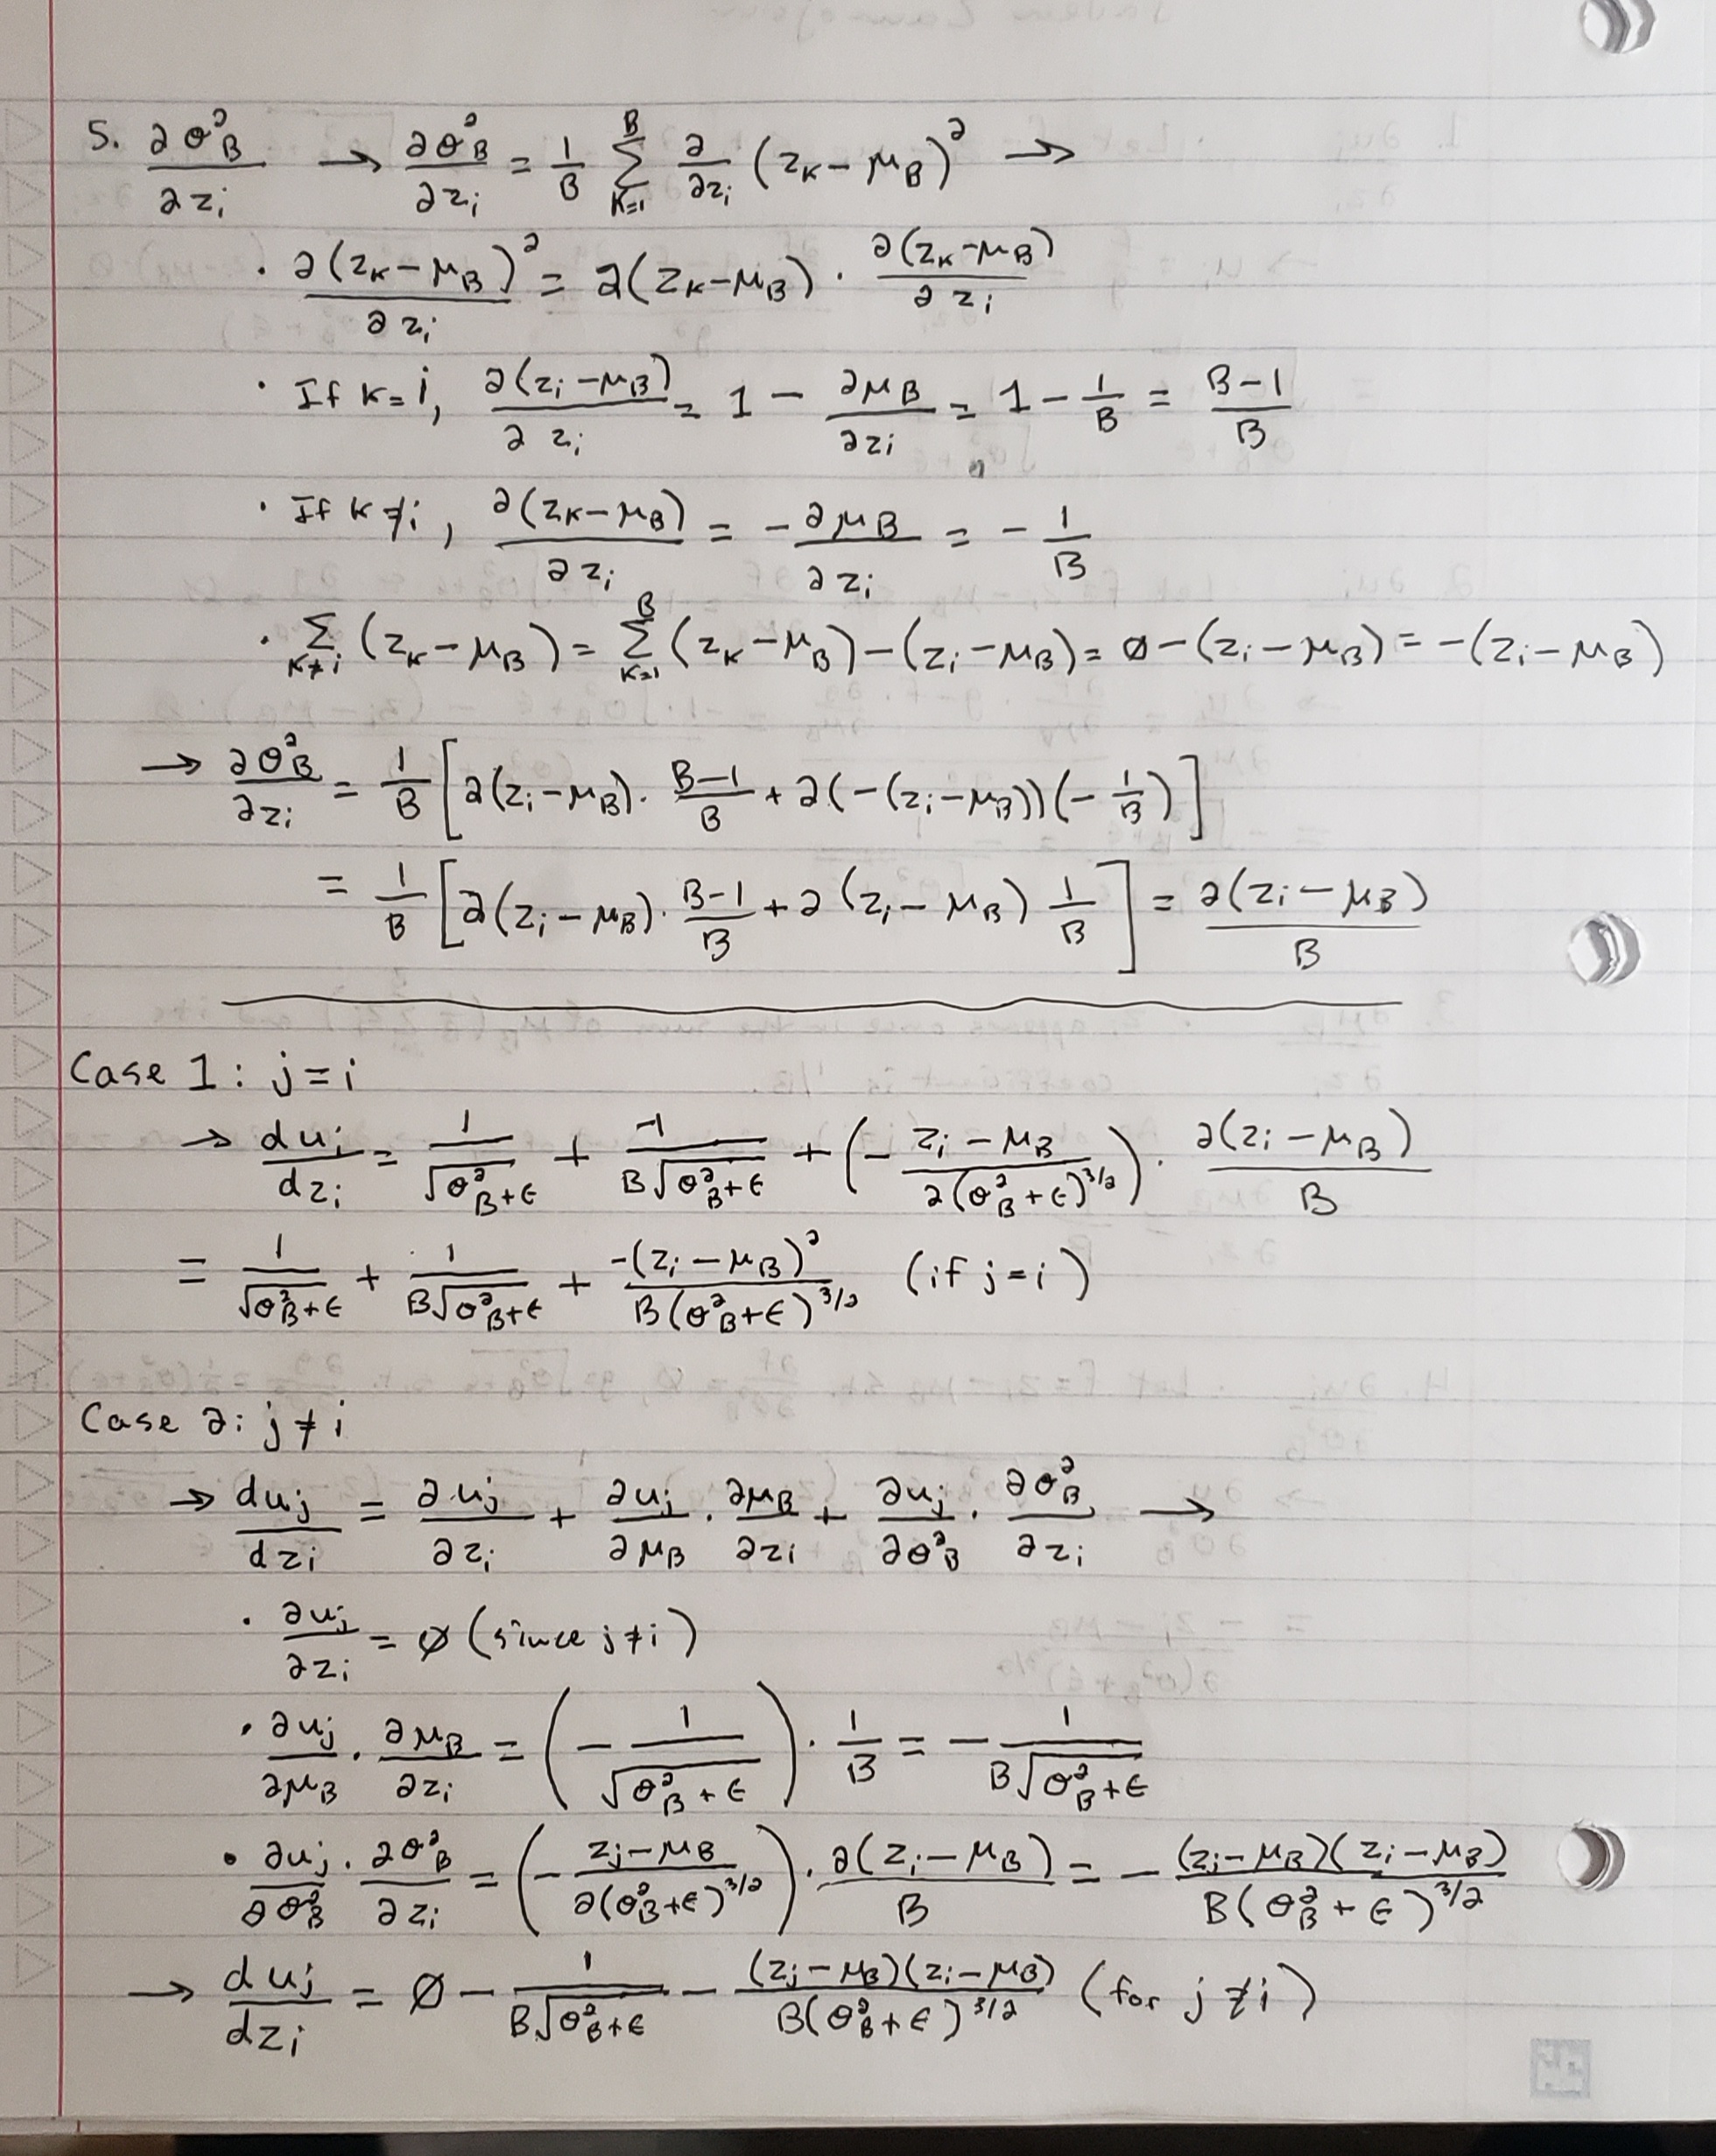 5. ∂σ²_B/∂z_i → ∂σ²_B/∂z_i = 1/B Σ_{K=1}^{B} ∂/∂z_i (z_K - μ_B)² →
· ∂(z_K - μ_B)²/∂z_i = 2(z_K - μ_B) · ∂(z_K - μ_B)/∂z_i
· If K = i, ∂(z_i - μ_B)/∂z_i = 1 - ∂μ_B/∂z_i = 1 - 1/B = (B-1)/B
· If K ≠ i, ∂(z_K - μ_B)/∂z_i = -∂μ_B/∂z_i = -1/B
· Σ_{K≠i} (z_K - μ_B) = Σ_{K=1}^{B} (z_K - μ_B) - (z_i - μ_B) = 0 - (z_i - μ_B) = -(z_i - μ_B)
→ ∂σ²_B/∂z_i = 1/B [2(z_i - μ_B) · (B-1)/B + 2(-(z_i - μ_B))(-1/B)]
= 1/B [2(z_i - μ_B) · (B-1)/B + 2(z_i - μ_B) 1/B] = 2(z_i - μ_B)/B
Case 1: j = i
→ du_i/dz_i = 1/√(σ²_B + ε) + -1/(B√(σ²_B + ε)) + (-(z_i - μ_B)/(2(σ²_B + ε)^{3/2})) · 2(z_i - μ_B)/B
= 1/√(σ²_B + ε) + 1/(B√(σ²_B + ε)) + -(z_i - μ_B)²/(B(σ²_B + ε)^{3/2}) (if j = i)
Case 2: j ≠ i
→ du_j/dz_i = ∂u_j/∂z_i + ∂u_j/∂μ_B · ∂μ_B/∂z_i + ∂u_j/∂σ²_B · ∂σ²_B/∂z_i →
· ∂u_j/∂z_i = 0 (since j ≠ i)
· ∂u_j/∂μ_B · ∂μ_B/∂z_i = (-1/√(σ²_B + ε)) · 1/B = -1/(B√(σ²_B + ε))
· ∂u_j/∂σ²_B · ∂σ²_B/∂z_i = (-(z_j - μ_B)/(2(σ²_B + ε)^{3/2})) · 2(z_i - μ_B)/B = -(z_j - μ_B)(z_i - μ_B)/(B(σ²_B + ε)^{3/2})
→ du_j/dz_i = 0 - 1/(B√(σ²_B + ε)) - (z_j - μ_B)(z_i - μ_B)/(B(σ²_B + ε)^{3/2}) (for j ≠ i)